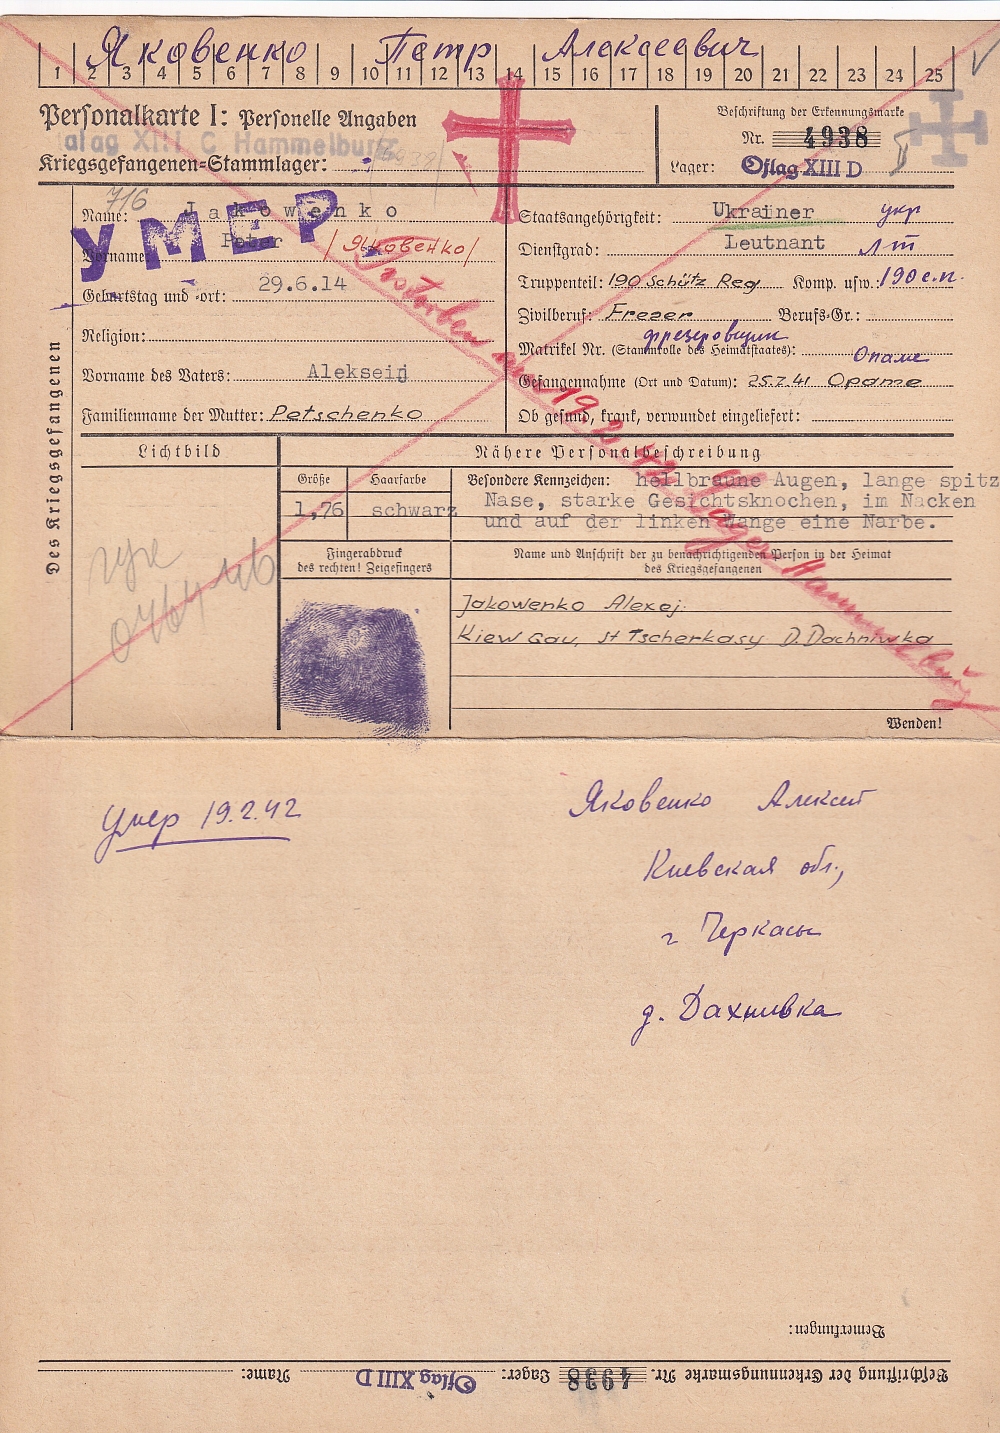 Яковенко Петр Алексеевич
1 2 3 4 5 6 7 8 9 10 11 12 13 14 15 16 17 18 19 20 21 22 23 24 25
Personalkarte I: Personelle Angaben
Beschriftung der Erkennungsmarke
Nr. 4938
talag XIII C Hammelburg
Kriegsgefangenen-Stammlager:
Lager: Oflag XIII D
716
Des Kriegsgefangenen
Name: Jakowenko
УМЕР
Vorname: Peter /Яковенко/
Geburtstag und -ort: 29.6.14
Religion:
Vorname des Vaters: Alekseij
Familienname der Mutter: Petschenko
Staatsangehörigkeit: Ukrainer укр
Dienstgrad: Leutnant Лт
Truppenteil: 190 Schütz Reg Komp. usw.: 190 с.п.
Zivilberuf: Frezer Berufs-Gr.:
фрезеровщик
Matrikel Nr. (Stammrolle des Heimatstaates):
Опаме
Gefangennahme (Ort und Datum): 25.7.41 Opame
Ob gesund, krank, verwundet eingeliefert:
Gestorben am 19.2.42 Lager Hammelburg
Lichtbild
Nähere Personalbeschreibung
Größe Haarfarbe
1,76 schwarz
Besondere Kennzeichen: hellbraune Augen, lange spitz
Nase, starke Gesichtsknochen, im Nacken
und auf der linken Wange eine Narbe.
Fingerabdruck
des rechten! Zeigefingers
Name und Anschrift der zu benachrichtigenden Person in der Heimat
des Kriegsgefangenen
Jakowenko Alexej.
Kiew Gau, St Tscherkasy D. Dachniwka
Wenden!
Умер 19.2.42
Яковенко Алексей
Киевская обл.,
г Черкасы
д. Дахнивка
Bemerkungen:
Beschriftung der Erkennungsmarke Nr. 4938 Lager: Oflag XIII D Name: